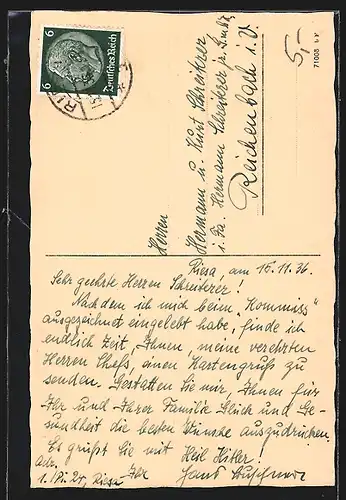 6
Deutsches Reich
6
5,-
71008
Herren
Hermann u. Kurt Schreiterer
i. Fa. Hermann Schreiterer jr. G.m.b.H.
Reichenbach i. V.
Riesa, am 15.11.36.
Sehr geehrte Herren Schreiterer!
Nachdem ich mich beim „Kommiss"
ausgezeichnet eingelebt habe, finde ich
endlich Zeit, Ihnen, meine verehrten
Herren Chefs, einen Kartengruß zu
senden. Gestatten Sie mir, Ihnen für
Ihr und Ihrer Familie Glück und Ge-
sundheit die besten Wünsche auszudrücken.
Es grüßt Sie mit Heil Hitler!
Adr. Ihr Hans
Riesa